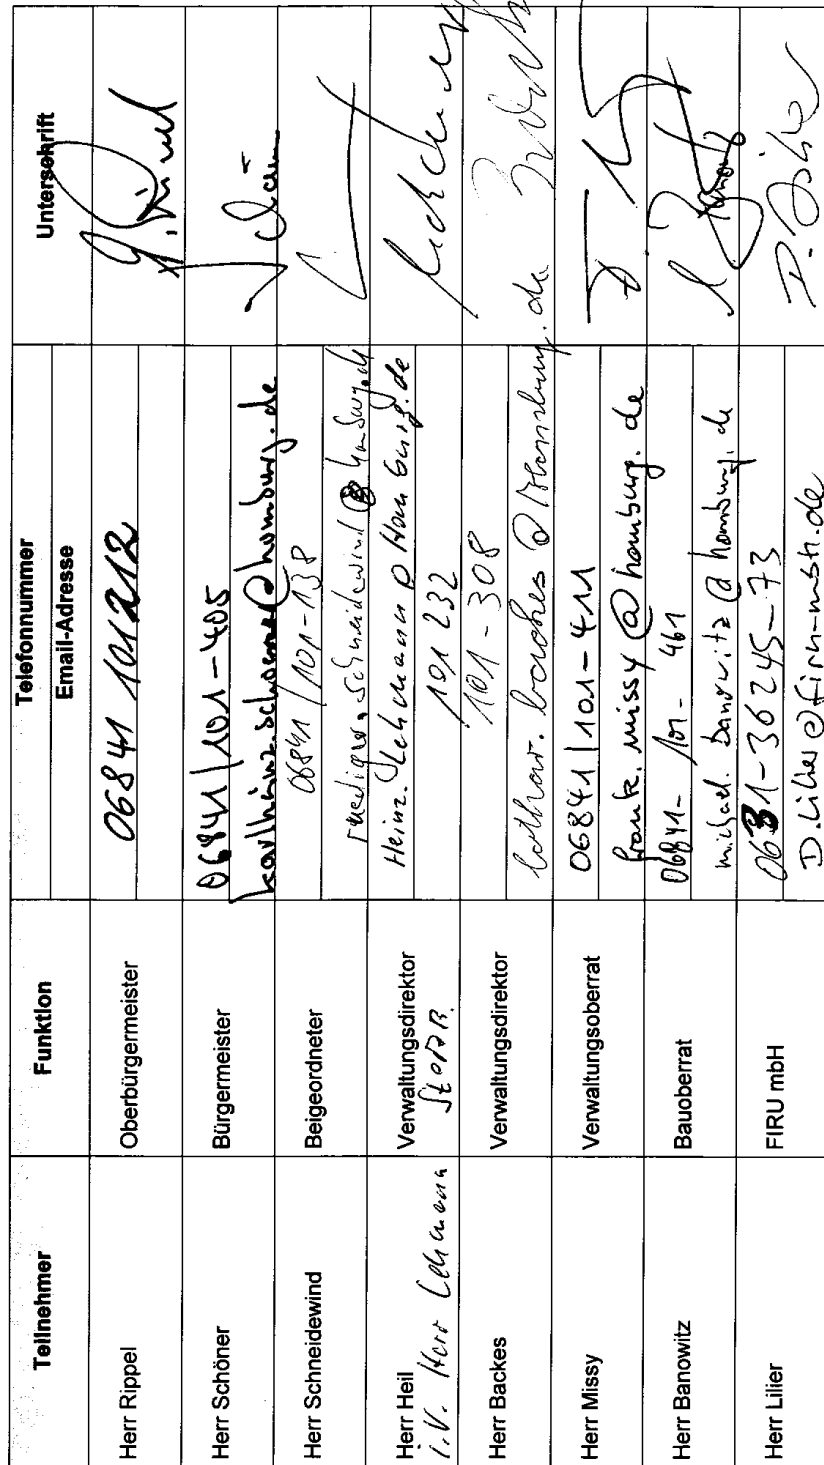 Teilnehmer Funktion Telefonnummer Unterschrift
Email-Adresse
Herr Rippel Oberbürgermeister 06841 101212
Herr Schöner Bürgermeister 06841/101-405
karlheinz.schoener@homburg.de
Herr Schneidewind Beigeordneter 06841/101-138
ruediger.schneidewind@homburg.de
Herr Heil Verwaltungsdirektor Heinz.Lehmann@Homburg.de
i.V. Herr Lehmann 101 232
Herr Backes Verwaltungsdirektor 101-308
@homburg.de
Herr Missy Verwaltungsoberrat 06841/101-411
frank.missy@homburg.de
Herr Banowitz Bauoberrat 06841-101-461
michael.banowitz@homburg.de
Herr Lilier FIRU mbH 0631-36245-73
D.Lilier@firu-mbh.de